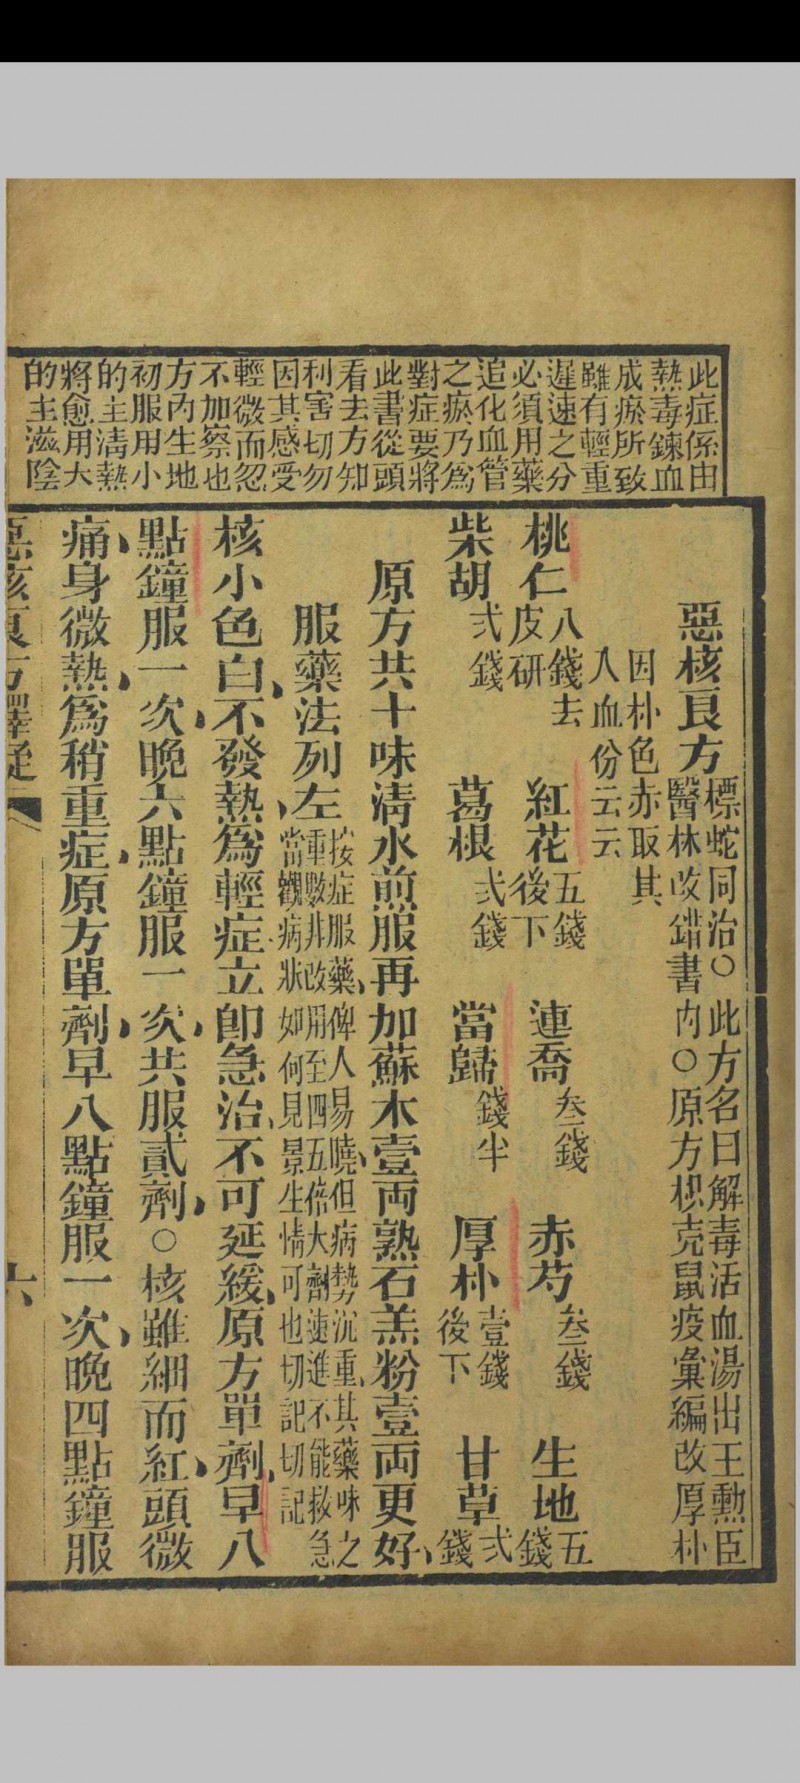 此症係由
熱毒鍊血
成瘀所致
雖有輕重
遲速之分
必須用藥
追化血管
之瘀乃爲
對症要將
此書從頭
看去方知
利害切勿
因其感受
輕微而忽
不加察也
方內生地
初服用小
的主清熱
將愈用大
的主滋陰
惡核良方
標蛇同治○此方名曰解毒活血湯出王勲臣
醫林改錯書內○原方枳壳鼠疫彙編改厚朴
因朴色赤取其
入血份云云
桃仁八錢去皮研 紅花五錢後下 連喬叁錢 赤芍叁錢 生地五錢
柴胡弍錢 葛根弍錢 當歸錢半 厚朴壹錢後下 甘草弍錢
原方共十味清水煎服再加蘇木壹両熟石羔粉壹両更好
服藥法列左
按症服藥俾人易曉但病勢沉重其藥味之
重數井改用至四五倍大劑速進不能救急
當觀病狀如何見景生情可也切記切記
核小色白不發熱爲輕症立卽急治不可延緩原方單劑早八
點鐘服一次晚六點鐘服一次共服貳劑○核雖細而紅頭微
痛身微熱爲稍重症原方單劑早八點鐘服一次晚四點鐘服
惡核良方釋疑
六